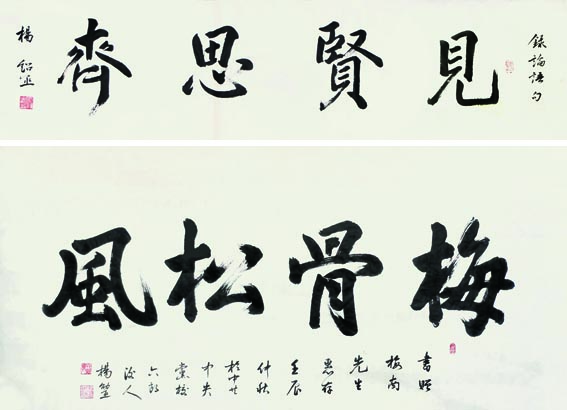 錄論語句
見賢思齊
楊
梅骨松風
書贈
梅南
先生
惠存
壬辰
仲秋
於中共
中央
黨校
六郎
後人
楊